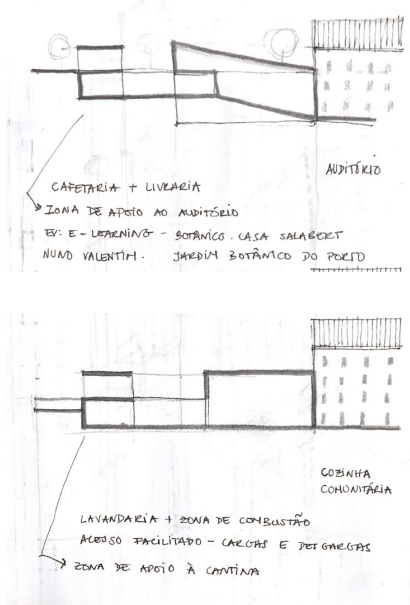 AUDITÓRIO
CAFETARIA + LIVRARIA
ZONA DE APOIO AO AUDITÓRIO
EV: E-LEARNING - BOTÂNICO. CASA SALABERT
NUNO VALENTIM. JARDIM BOTÂNICO DO PORTO
COZINHA
COMUNITÁRIA
LAVANDARIA + ZONA DE COMBUSTÃO
ACESSO FACILITADO - CARGAS E DESGARGAS
ZONA DE APOIO À CANTINA